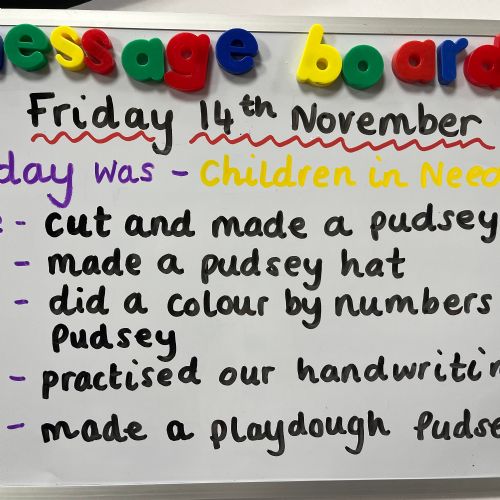 essage board
Friday 14th November
day was - Children in Need
e - cut and made a pudsey
- made a pudsey hat
- did a colour by numbers
Pudsey
- practised our handwritin
- made a playdough Pudse